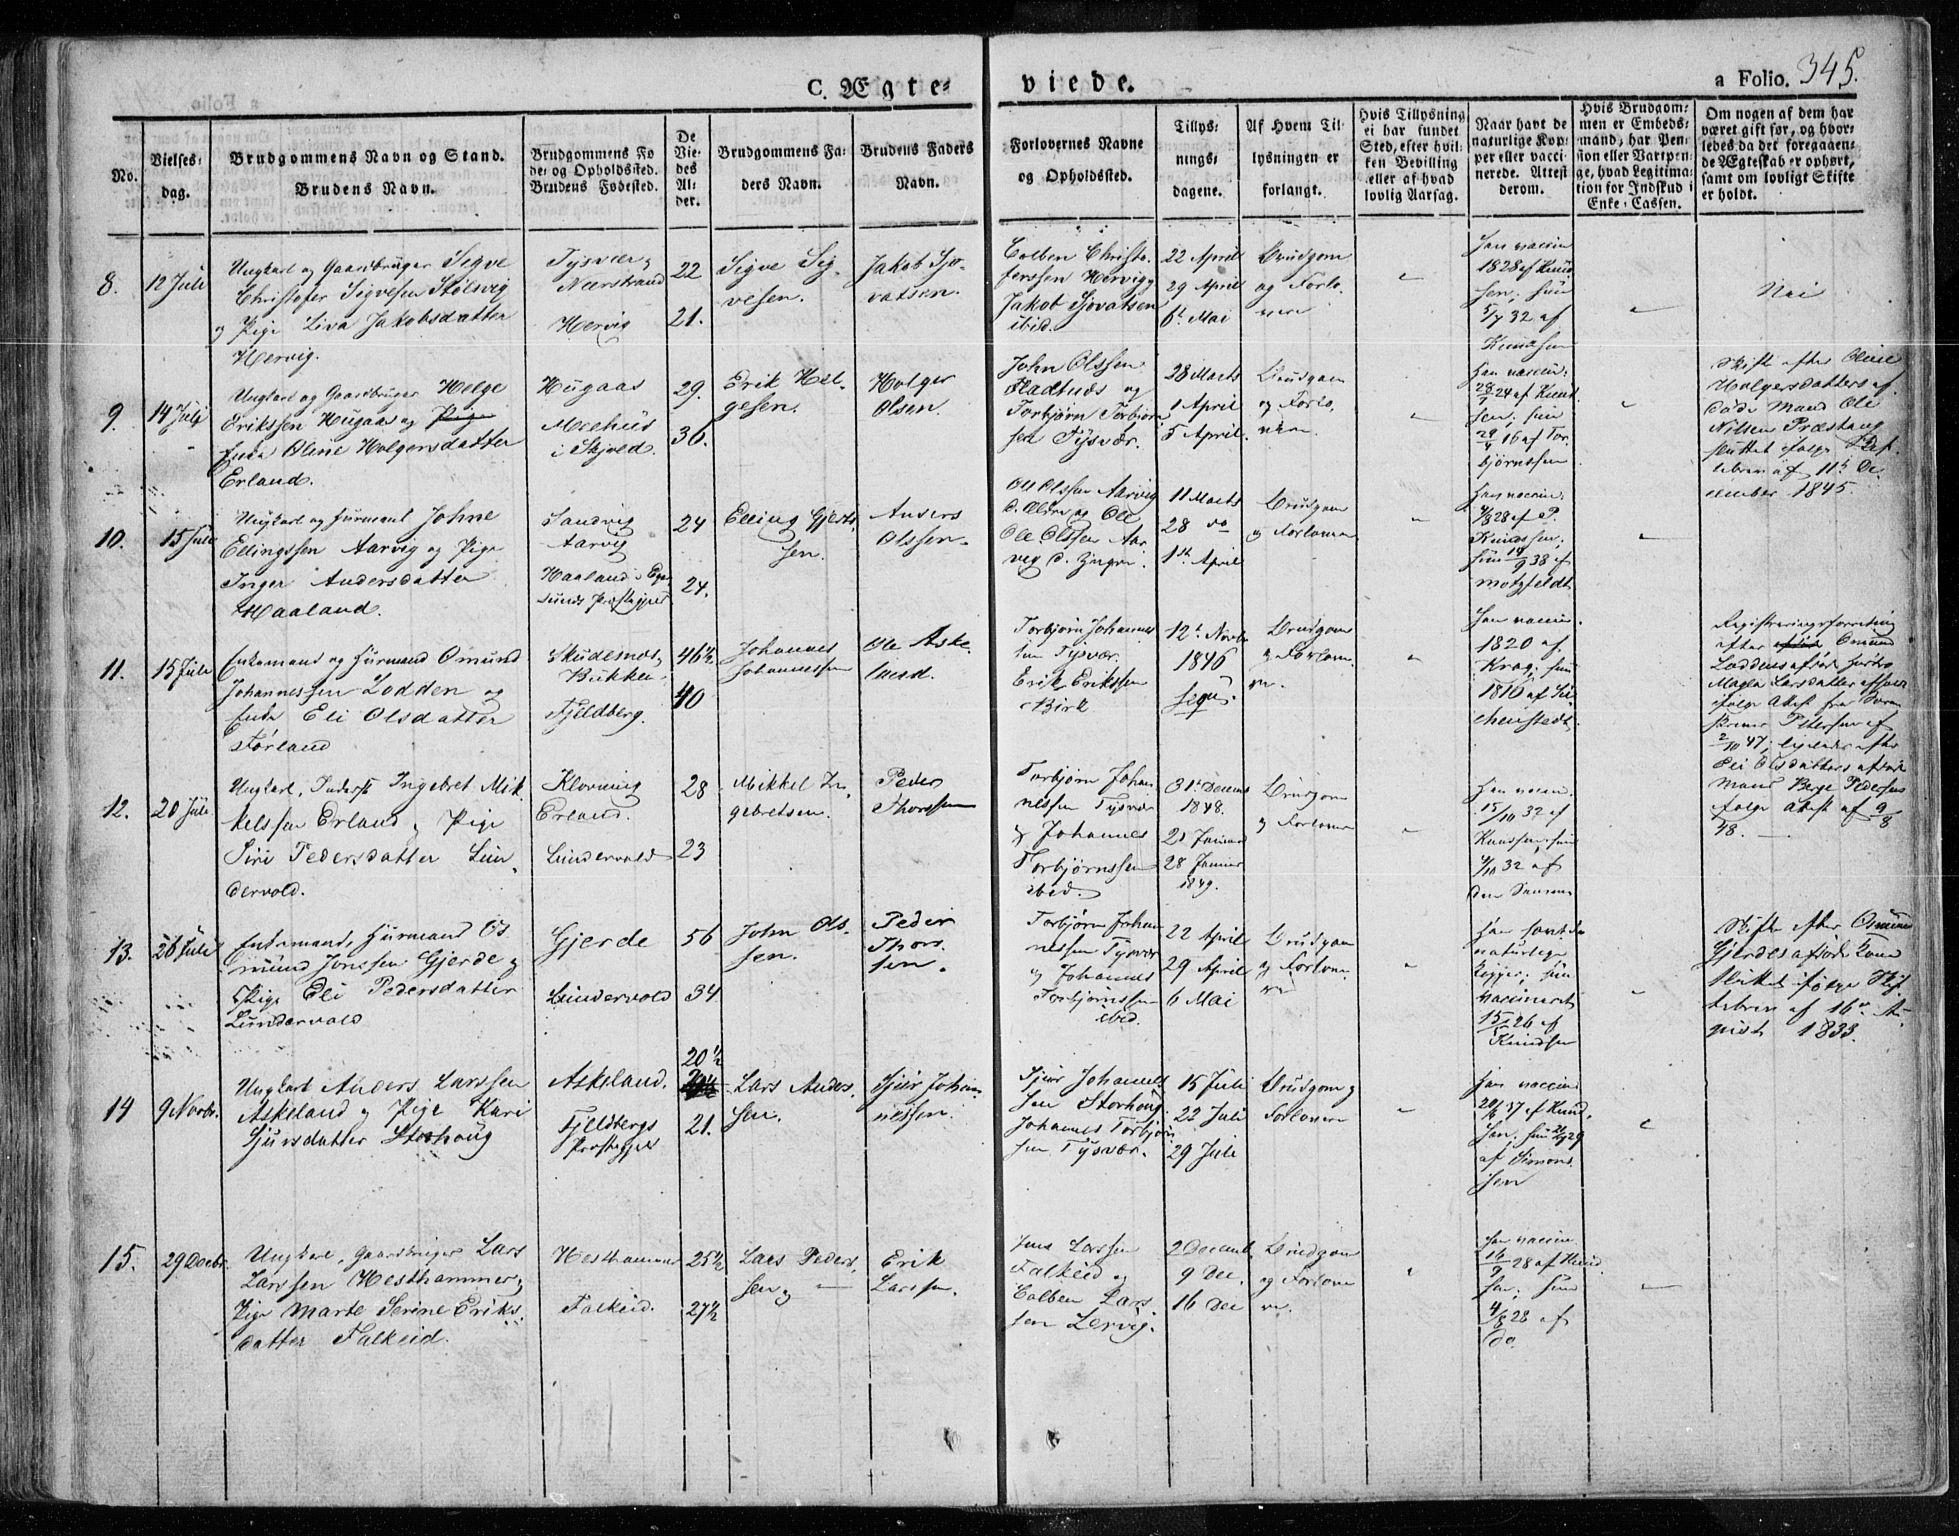 C. Ægte-
viede.
a Folio. 345.
No.
Vielses-
dag.
Brudgommens Navn og Stand.
Brudens Navn.
Brudgommens Fø
de- og Opholdssted.
Brudens Fødested.
De
Vie-
des
Al-
der.
Brudgommens Fa-
ders Navn.
Brudens Faders
Navn.
Forlovernes Navne
og Opholdssted.
Tillys-
nings-
dagene.
Af Hvem Til-
lysningen er
forlangt.
Hvis Tillysning
ei har fundet
Sted, efter hvil-
ken Bevilling
eller af hvad
lovlig Aarsag.
Naar havt de
naturlige Kop-
per eller vacci-
nerede. Attest
derom.
Hvis Brudgom-
men er Embeds-
mand, har Pen-
sion eller Vartpen-
ge, hvad Legitima-
tion for Indskud i
Enke-Cassen.
Om nogen af dem har
været gift før, og hvor-
ledes da det foregaaen-
de Ægteskab er ophørt,
samt om lovligt Skifte
er holdt.
8.
12 Juli
Ungkarl og Gaardbruger Sigve
Christofer Sigvesen Stølsvig
og Pige Liva Jakobsdatter
Hervig.
Tysvær,
Nærstrand
Hervig
22
21.
Sigve Sig-
vesen.
Jakob Sjo-
vatsen.
Colben Christo-
fersen Hervig
Jakob Sjovatsen
ibid.
22 April
29 April
6t Mai
Brudgom
og Forlo-
vere
Han vaccin
1828 af Knud-
sen; hun
5/7 32 af
Knudsen
Nei
9.
14 Juli
Ungkarl og Gaardbruger Helge
Erikssen Hugaas og Pige
Enke Oline Holgersdatter
Erland.
Hugaas
Meehus
i Skjold.
29.
36.
Erik Hel-
gesen.
Holger
Olsen.
John Olssen
og
Torbjørn Torbjørn-
sen Tysvær.
28 Marts
1 April
5 April.
Brudgom
og Forlo-
vere
Han vaccin:
24 af Knud-
sen; hun
16 af Tor-
bjørnssen
Skifte efter Oline
Holgersdatters af-
døde Mand Ole
Nilsen
sluttet ifølge Skif-
tebrev af 11t De-
cember 1845
10.
15 Juli
Ungkarl og Huusmand Johne
Ellingssen Aarvig og Pige
Inger Andersdatter
Haaland.
Sandvig
Aarvig
Haaland i Eger-
sunds Præstegjæld
24
24.
Elling Gjerts-
sen.
Anders
Olssen.
Ole Olssen Aarvig
Ole Olssen Aar-
vig
11 Marts
28 do
1ste April
Brudgom
og Forlovere
Han vaccin:
28 af P.
Knudsen;
hun 14/9 38 af
Motzfeldt
11.
15 Juli
Enkemand og Huusmand Omund
Johannessen Lodden og
Enke Eli Olsdatter
Førland
Skudesnæs
Bukken
Fjeldberg.
46½
40
Johannes
Johannessen
Ole Aske-
land.
Torbjørn Johannes-
sen Tysvær.
Erik Erikssen
Birk
12t Novbr
1846
sequ.
Brudgom
og Forlove-
re.
Han vaccin
1820 af
Krag; hun
1810 af
Registreringsforretning
efter Omund
Loddens afdøde Hustru
Magla Larsdatter
ifølge Attest fra
Petersen af
2/10 47; ligeledes efter
Eli Olsdatters afdøde
Mand Børge Pedersen
ifølge Attest af 9/8
48.
12.
20 Juli
Ungkarl, Inderst Ingebret Mik-
kelssen Erland og Pige
Siri Pedersdatter Lun-
dervold.
Klovning
Erland.
Lundervold
28
23
Mikkel In-
gebretsen.
Peder
Thorssen
Torbjørn Johan-
nessen Tysvær
og Johannes
Torbjørnssen
ibid.
31t Decemb
1848.
21 Januar
28 Januar
1849.
Brudgom
og Forlovere
Han vaccin.
15/10 32 af
Knudsen; hun
4/10 32 af
den Samme
13.
26 Juli
Enkemand, Huusmand Os-
mund Jonssen Gjerde og
Pige Eli Pedersdatter
Lundervold
Gjerde
Lundervold
56
34
John Ols-
sen.
Peder
Thors-
sen.
Torbjørn Johan-
nessen Tysvær
og Johannes
Torbjørnssen
ibid.
22 April
29 April
6 Mai
Brudgom
og Forlove-
re
Han havt de
naturlige
Kopper; hun
vaccineret
15/5 26 af
Knudsen
Skifte efter Osmund
Gjerdes afdøde Kone
sluttet ifølge Skif-
tebrev af 16de Au-
gust 1833.
14
9 Novbr.
Ungkarl Anders Larssen
Askeland og Pige Kari
Sjursdatter Storhoug
Askeland.
Fjeldbergs
Præstegjæld
20½
21.
Lars Anders-
sen.
Sjur Johan-
nessen.
Sjur Johannes-
sen Storhoug.
Johannes Torbjørn-
sen Tysvær.
15 Juli
22 Juli
29 Juli
Brudgom og
Forlovere
Han vaccin
37 af Knud-
sen; hun 29
af Simons-
sen
15.
29 Decbr.
Ungkarl, Gaardbruger Lars
Larssen Hesthammer og
Pige Marte Serine Eriks-
datter Falkeid.
Hesthammer
Falkeid.
25½
27½
Lars Peders-
sen
Erik
Larssen.
Jens Larssen
Falkeid og
Colben Lars-
sen Lervig.
2 Decemb.
9 Dec.
16 Dec
Brudgom
og Forlove-
re.
Han vaccin
16/9 28 af Knud-
sen; hun
4/8 28 af
do